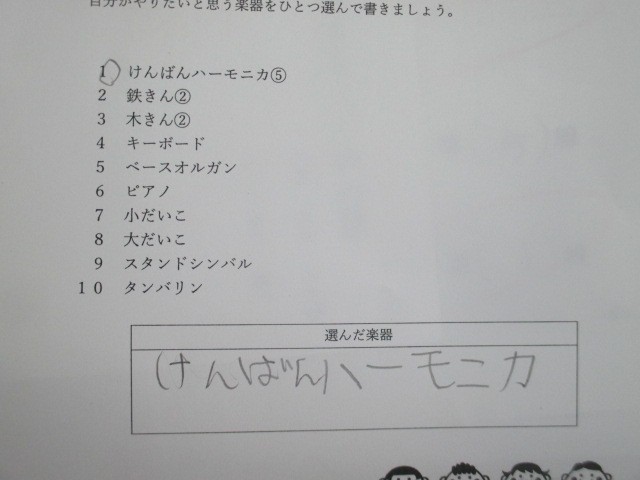 自分がやりたいと思う楽器をひとつ選んで書きましょう。
1 けんばんハーモニカ⑤
2 鉄きん②
3 木きん②
4 キーボード
5 ベースオルガン
6 ピアノ
7 小だいこ
8 大だいこ
9 スタンドシンバル
10 タンバリン
選んだ楽器
けんばんハーモニカ